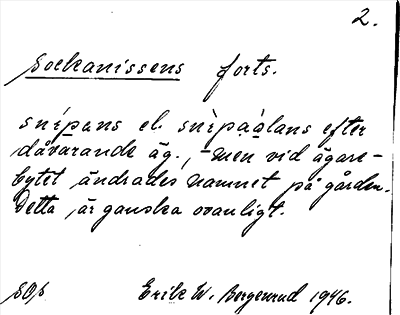 2.
Sockanissens forts.
snípans el. snìpaọlans efter
dåvarande äg., men vid ägare-
bytet ändrades namnet på gården.
Detta är ganska ovanligt.
SOp Erik W. Bergenrud 1946.